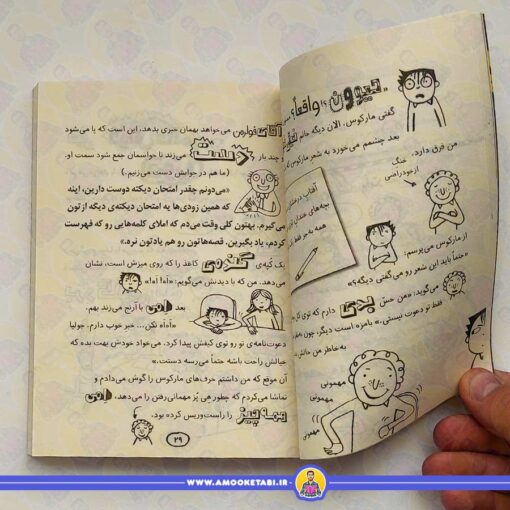 حیوون؟! واقعاً؟
گفتی مارکوس. الان دیگه خانم
بعد چشمم می‌خورد به شعر مارکوس که
من فرق دارد.
جنگ
ازخودراضی
آفتاب درخشان
بچه‌های خندان
همه به‌جز فقط
از مارکوس می‌پرسم:
«حتماً باید این شعر رو می‌گفتی دیگه؟»
می‌گوید: «من حسّ بدی دارم که توی
فقط تو دعوت نیستی.» بامزه است دیگر، چون به‌هر
به‌خاطر من خالش
مهمونی
مهمونی
مهمونی
مهمونی
آقای فولرمن می‌خواهد بهمان خبری بدهد، این است که پا می‌شود
و چند بار دست می‌زند تا حواسمان جمع شود سمت او.
(ما هم در جوابش دست می‌زنیم.)
«می‌دونم چقدر امتحان دیکته دوست دارین، اینه
که همین زودی‌ها یه امتحان دیکته‌ی دیگه ازتون
می‌گیرم. بهتون کلی وقت می‌دم که املای کلمه‌هایی رو که فهرست
کردم، یاد بگیرین. قصه‌هاتون رو هم یادتون نره.»
یک کُپه‌ی گُنده‌ی کاغذ را که روی میزش است، نشان
می‌دهد. من که با دیدنش می‌گویم: «اَه! اَه! اَه!»
بعد اِمی با آرنج می‌زند بهم.
«اَه‌اَه نکن... خبر خوب دارم. جولیا
دعوت‌نامه‌ی تو رو توی کیفش پیدا کرد. می‌خواد خودش بهت بده که
خیالش راحت باشه حتماً می‌رسه دستت.»
آن موقع که من داشتم حرف‌های مارکوس را گوش می‌دادم و
تماشا می‌کردم که چطور هی پُز مهمانی رفتن را می‌دهد، اِمی
همه‌چیز را راست‌وریس کرده بود.
۲۹
WWW.AMOOKETABI.IR